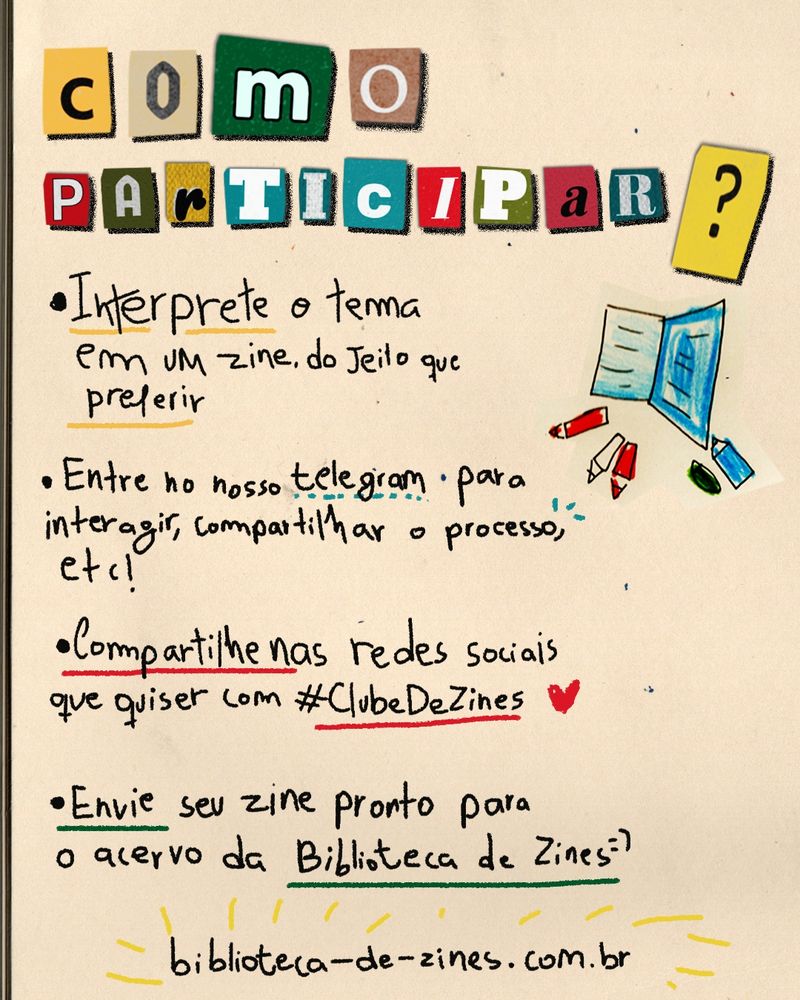 como
PArTIcIPaR?
•Interprete o tema
em um zine, do Jeito que
preferir
• Entre no nosso telegram · para
interagir, compartilhar o processo,
etc!
•Compartilhe nas redes sociais
que quiser com #ClubeDeZines
•Envie seu zine pronto para
o acervo da Biblioteca de Zines=)
biblioteca-de-zines.com.br